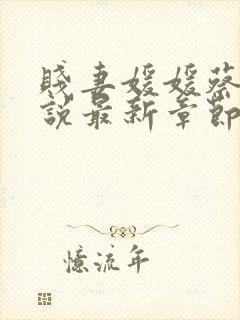 賤妻媛媛蔡
說最新章節
憶流年